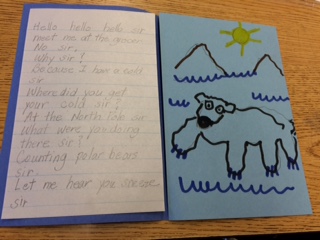 Hello hello hello sir
meet me at the grocer
No sir
Why sir?
Because I have a cold
sir.
Where did you get
your cold sir?
At the North Pole sir
what were you doing
there sir?
Counting polar bears
sir
Let me hear you sneeze
sir